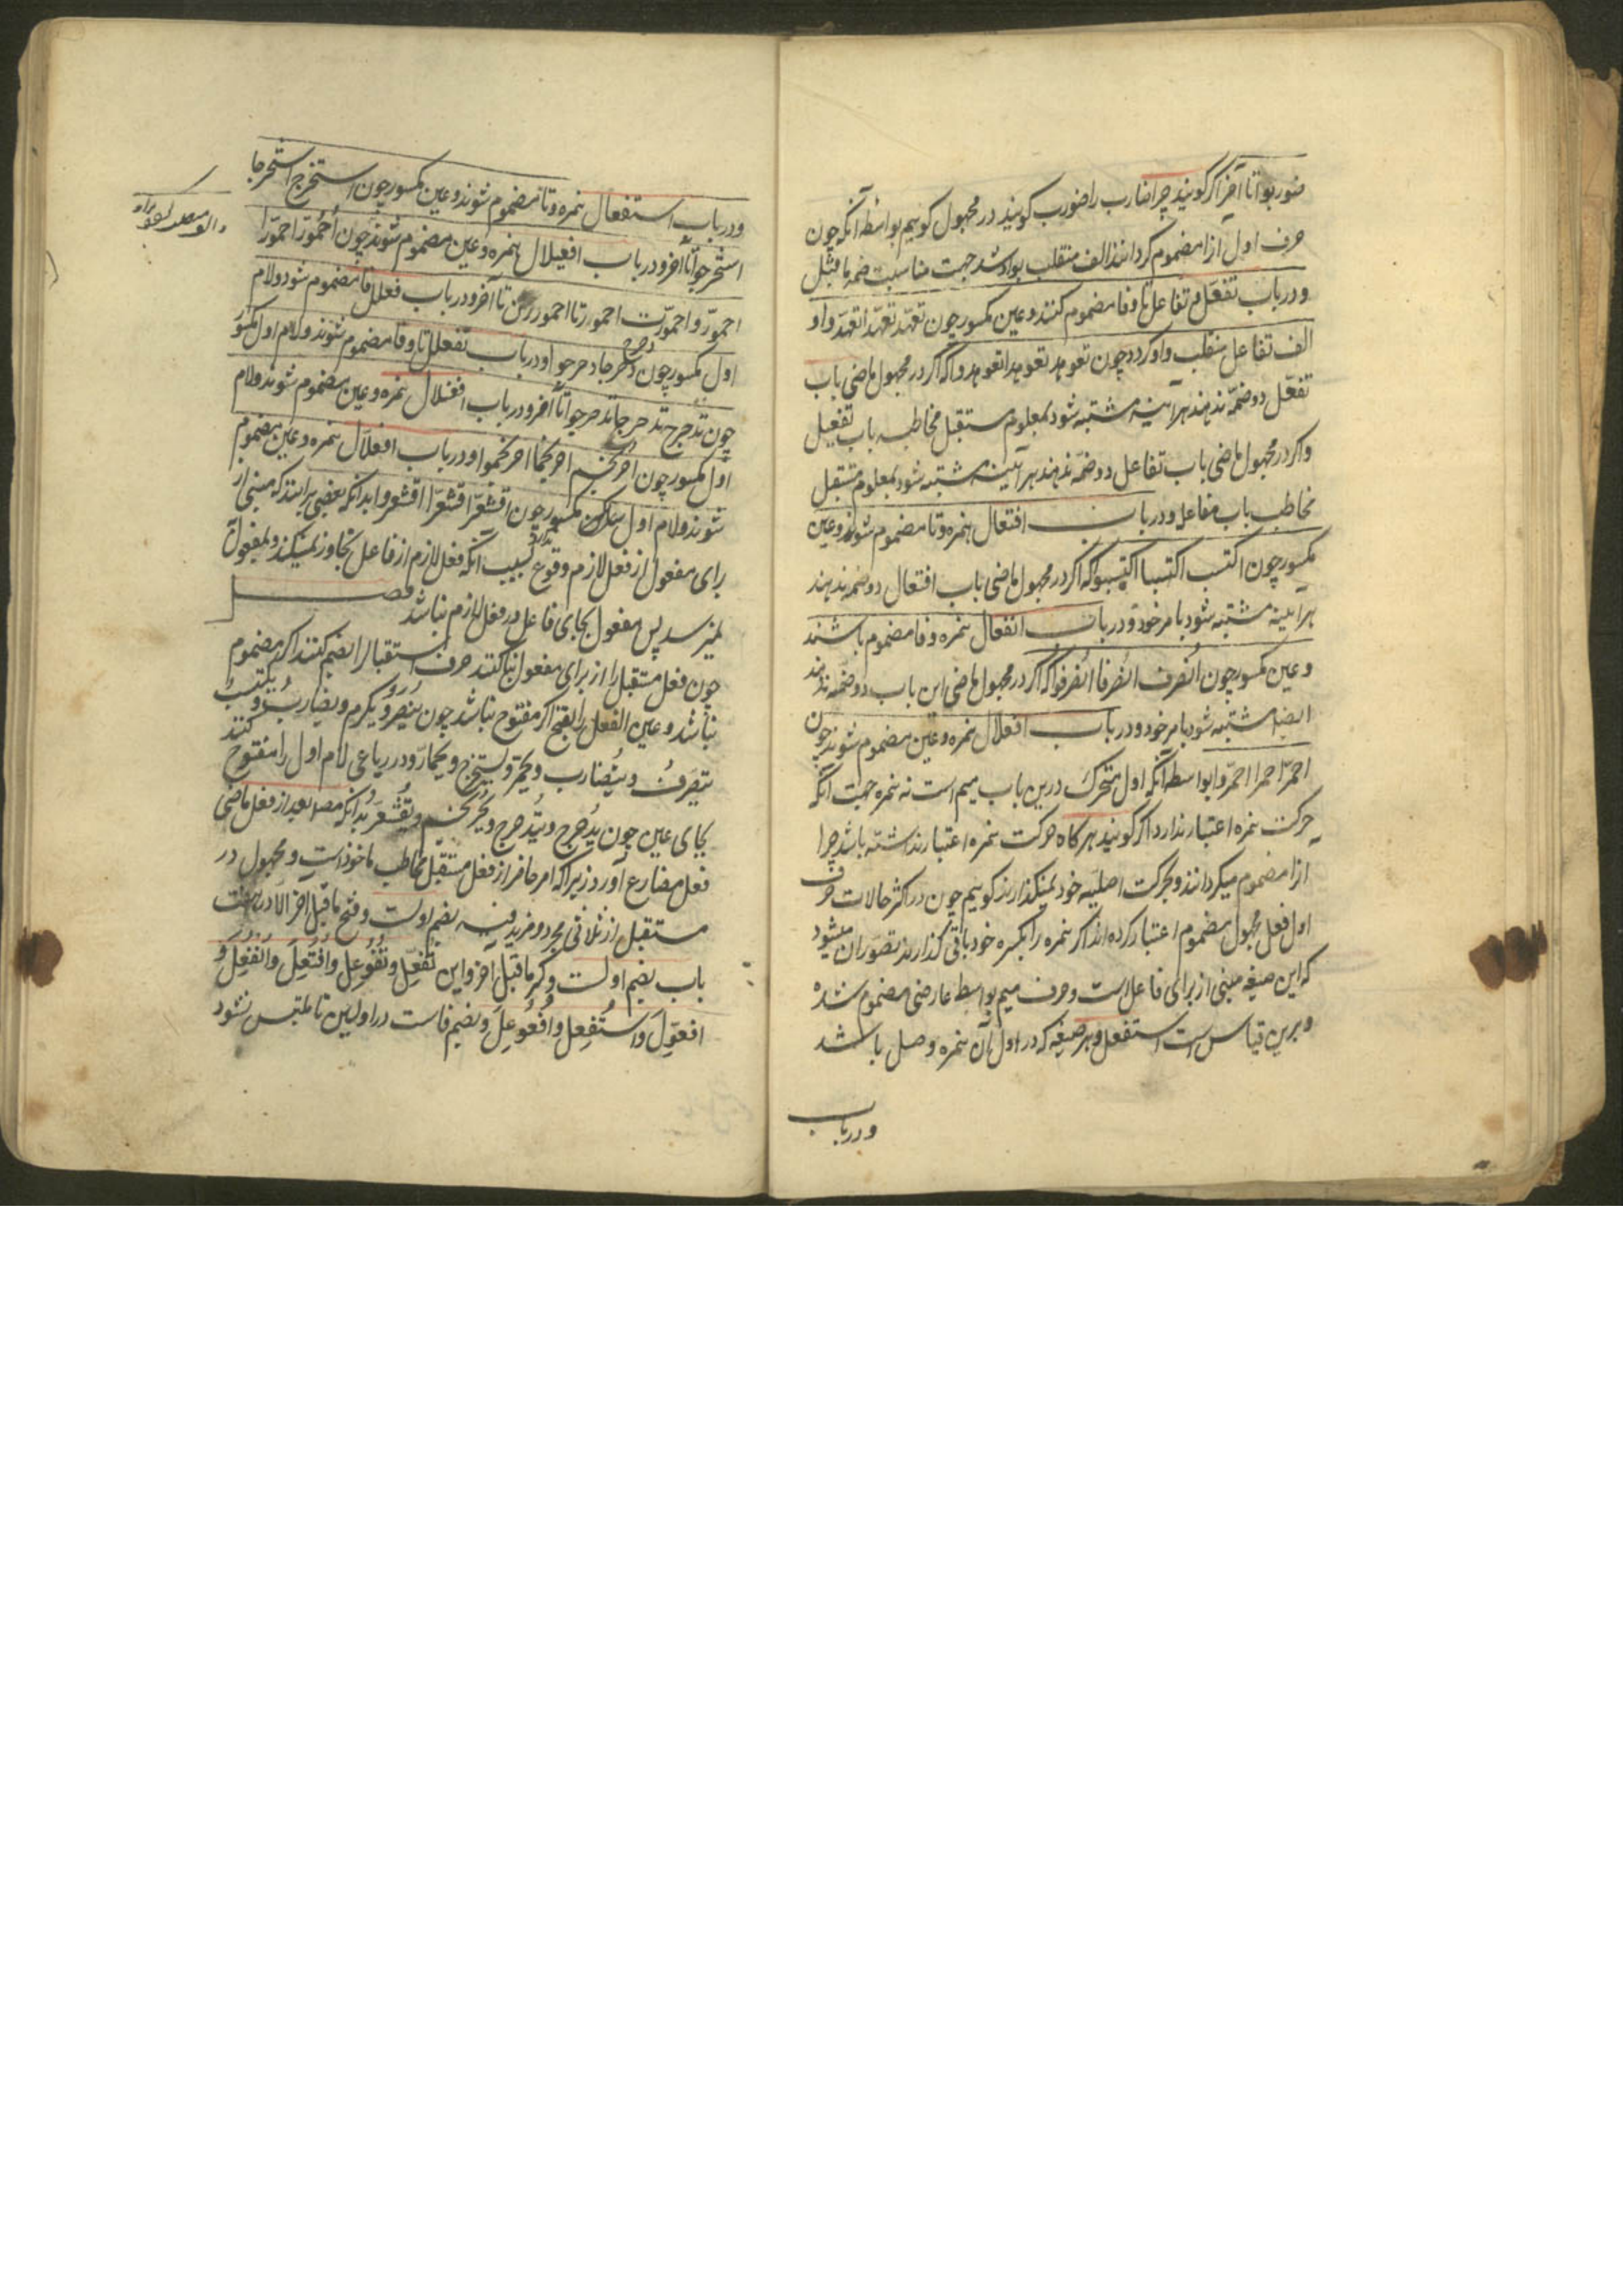 ضوربوا تا آخر اگر گویند چرا ضارب را ضورب گویند در مجهول گوییم بواسطه آنکه چون
حرف اول ازا مضموم گردانند الف منقلب بواو شد جهت مناسبت ضمه ماقبل
و در باب تفعل و تفاعل تا و فا مضموم کنند و عین مکسور چون تعهد تعهدا تعهدوا و
الف تفاعل منقلب واو گردد چون تعوهد تعوهدا تعوهدوا که اگر در مجهول ماضی باب
تفعّل دو ضمّه ندهند هرآینه مشتبه شود بمعلوم مستقبل مخاطبه باب تفعیل
و اگر در مجهول ماضی باب تفاعل دو ضمه ندهند هرآینه مشتبه شود بمعلوم مستقبل
مخاطب باب مفاعله و در باب افتعال همزه و تا مضموم شوند و عین
مکسور چون اکتسب اکتسبا اکتسبوا که اگر در مجهول ماضی باب افتعال دو ضمه ندهند
هرآینه مشتبه شود بامر خود و در باب انفعال همزه و فا مضموم باشند
و عین مکسور چون اُنصُرف انصرفا انصرفوا که اگر در مجهول ماضی این باب دو ضمه ندهند
ایضا مشتبه شود بامر خود و در باب افعلال همزه و عین مضموم شوند چون
احمرّ احمرا احمرّوا بواسطه آنکه اول متحرک درین باب میم است نه همزه جهت آنکه
حرکت همزه اعتبار ندارد اگر گویند هرگاه حرکت همزه اعتبار نداشته باشد چرا
ازا مضموم میگردانند و بحرکت اصلیه خود نمیگذارند گوییم چون در اکثر حالات حرف
اول فعل مجهول مضموم اعتبار کرده اند اگر همزه را بکسره خود باقی گذارند تصور آن میشود
که این صیغه مبنی از برای فاعلست و حرف میم بواسطه عارضی مضموم شده
و برین قیاس است استفعل و هر صیغه که در اول آن همزه وصل باشد
و در باب
و در باب استفعال همزه و تا مضموم شوند و عین مکسور چون استخرج استخرجا
استخرجوا تا آخر و در باب افعیلال همزه و عین مضموم شوند چون اُحمُورّ احمورّا
احمورّوا احمورّت احمورّتا احموررن تا آخر و در باب فعلل فا مضموم شود و لام
اول مکسور چون دحرج دحرجا دحرجوا و در باب تفعلل تا و فا مضموم شوند و لام اول مکسور
چون تدحرج تدحرجا تدحرجوا تا آخر و در باب افعنلال همزه و عین مضموم شوند و لام
اول مکسور چون احرنجم احرنجما احرنجموا و در باب افعلّال همزه و عین مضموم
شوند و لام اول مکسور چون اقشعرّ اقشعرّا اقشعروا بدانکه بعضی برانند که مبنی از
برای مفعول از فعل لازم وقوع ندارد بسبب آنکه فعل لازم از فاعل تجاوز نمیکند و بمفعول
نمیرسد پس مفعول بجای فاعل در فعل لازم نباشد فصل
چون فعل مستقبل را از برای مفعول بنا کنند حرف استقبال را بضم کنند اگر مضموم
نباشد و عین الفعل را بفتح اگر مفتوح نباشد چون یُنصَرُ و یکرم و یضاربُ و یکتسبُ
ینصرفُ و یتضارب و یحمرّ و یستخرج و یحمارّ و در رباعی لام اول را مفتوح کنند
بجای عین چون یُدحرج و یتدحرج و یحرنجم و یقشعرّ بدانکه مصـ بعد از فعل ماضی
فعل مضارع آورد زیرا که امر حاضر از فعل مستقبل مخاطب ماخوذ است و مجهول در
مستقبل از ثلاثی مجرد و مزید فیه بضم اولست و فتح ماقبل آخر الا در هفت
باب بضم اولست و کسر ماقبل آخر و این تُفُعِّلَ و تُفُوعِلَ و اُفتُعِلَ و انفُعِلَ و
افعوّل و استُفعِل و اُفعُوعِلَ و بضم فاست در اولین تا ملتبس نشود